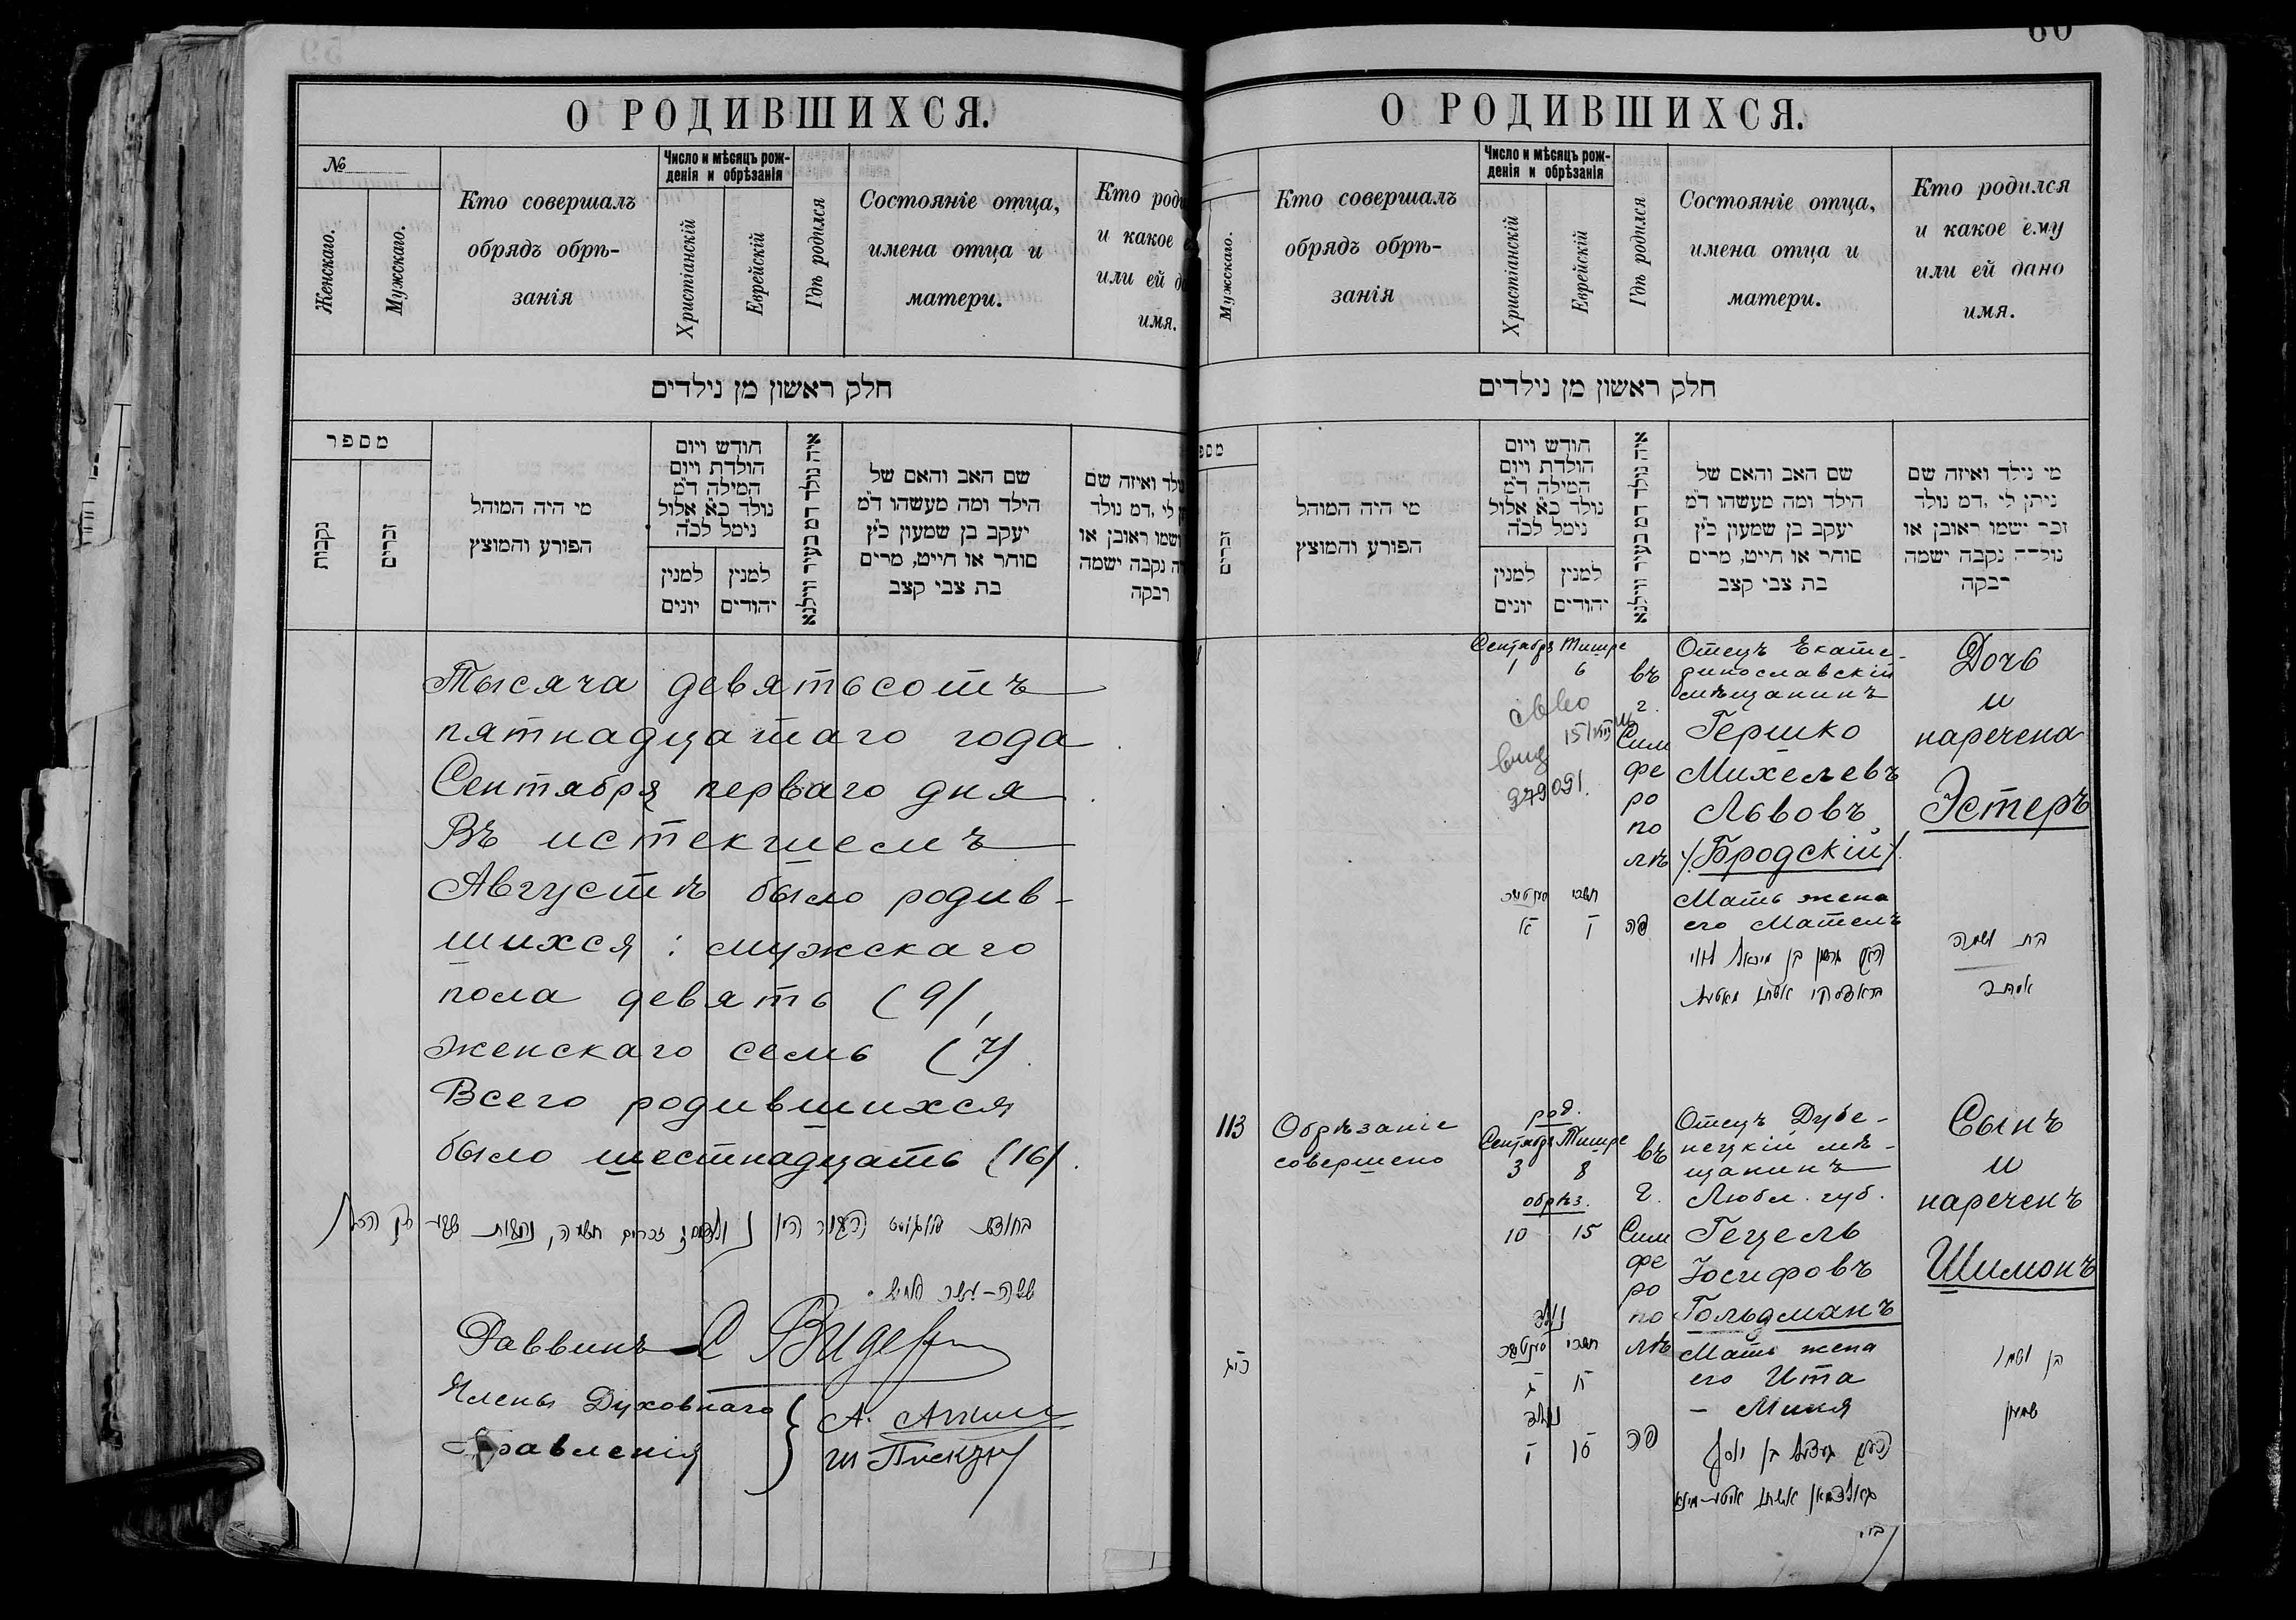 О РОДИВШИХСЯ.
№
Женскаго.
Мужскаго.
Кто совершалъ
обрядъ обрѣ-
занія
Число и мѣсяцъ рож-
денія и обрѣзанія
Христіанскій
Еврейскій
Гдѣ родился
Состояніе отца,
имена отца и
матери.
Кто роди
и какое е
или ей да
имя.
חלק ראשון מן נילדים
מספר
נקבות
זכרים
מי היה המוהל
הפורע והמוצץ
חודש ויום
הולדת ויום
המילה ד״מ
נולד כ״א אלול
נימל לכ״ה
למנין
יונים
למנין
יהודים
איה נולד דמ בעיר ווילנא
שם האב והאם של
הילד ומה מעשהו ד״מ
יעקב בן שמעון כ״ץ
סוחר או חייט, מרים
בת צבי קצב
ולד ואיזה שם
לי ,דמ נולד
ושמו ראובן או
ה נקבה ישמה
רבקה
Тысяча девятьсотъ
пятнадцатаго года
Сентября перваго дня
Въ истекшемъ
Августѣ было родив-
шихся: мужскаго
пола девять (9),
женскаго семь (7).
Всего родившихся
было шестнадцать (16).
Раввинъ С
Члены Духовнаго
Правленія
А.
60
О РОДИВШИХСЯ.
Мужскаго.
Кто совершалъ
обрядъ обрѣ-
занія
Число и мѣсяцъ рож-
денія и обрѣзанія
Христіанскій
Еврейскій
Гдѣ родился
Состояніе отца,
имена отца и
матери.
Кто родился
и какое ему
или ей дано
имя.
חלק ראשון מן נילדים
מספ
זכרים
מי היה המוהל
הפורע והמוצץ
חודש ויום
הולדת ויום
המילה ד״מ
נולד כ״א אלול
נימל לכ״ה
למנין
יונים
למנין
יהודים
איה נולד דמ בעיר ווילנא
שם האב והאם של
הילד ומה מעשהו ד״מ
יעקב בן שמעון כ״ץ
סוחר או חייט, מרים
בת צבי קצב
מי נילד ואיזה שם
ניתן לי ,דמ נולד
זכר ישמו ראובן או
נולדה נקבה ישמה
רבקה
Сентября Тишре
1 6
въ
г.
Сим
фе
ро
по
лѣ
Отецъ Екате-
ринославскій
мѣщанинъ
Гершко
Михелевъ
Львовъ
/Бродскій/.
Мать жена
его Мател
Дочь
и
наречена
Эстеръ
279091.
תשרי
פה
בת ושמה
אסתר
113
Обрѣзаніе
совершено
род.
Сентября Тишре
3 8
обрѣз.
10 15
въ
г.
Сим
фе
ро
по
лѣ
Отецъ Дубе-
нецкій мѣ-
щанинъ
Любл. губ.
Гецель
Іосифовъ
Гольдманъ
Мать жена
его Ита
- Миня
Сынъ
и
нареченъ
Шимонъ
תשרי
פה
בן ושמו
שמעון